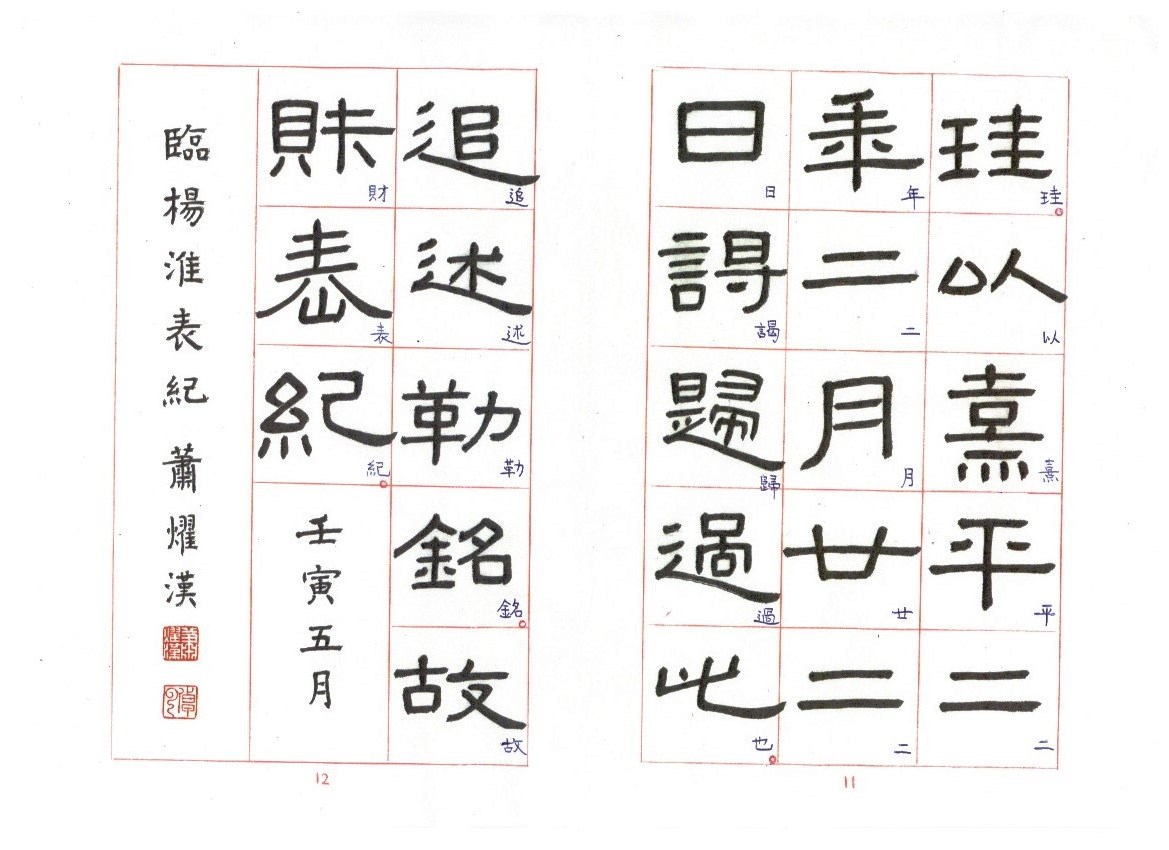 珪以熹平二
珪。以熹平二
年二月廿二
年二月廿二
日謁歸過也
日謁歸過也。
11
追述勒銘故
追述勒銘。故
財表紀
財表紀。
壬寅五月
臨楊淮表紀 蕭燿漢
12